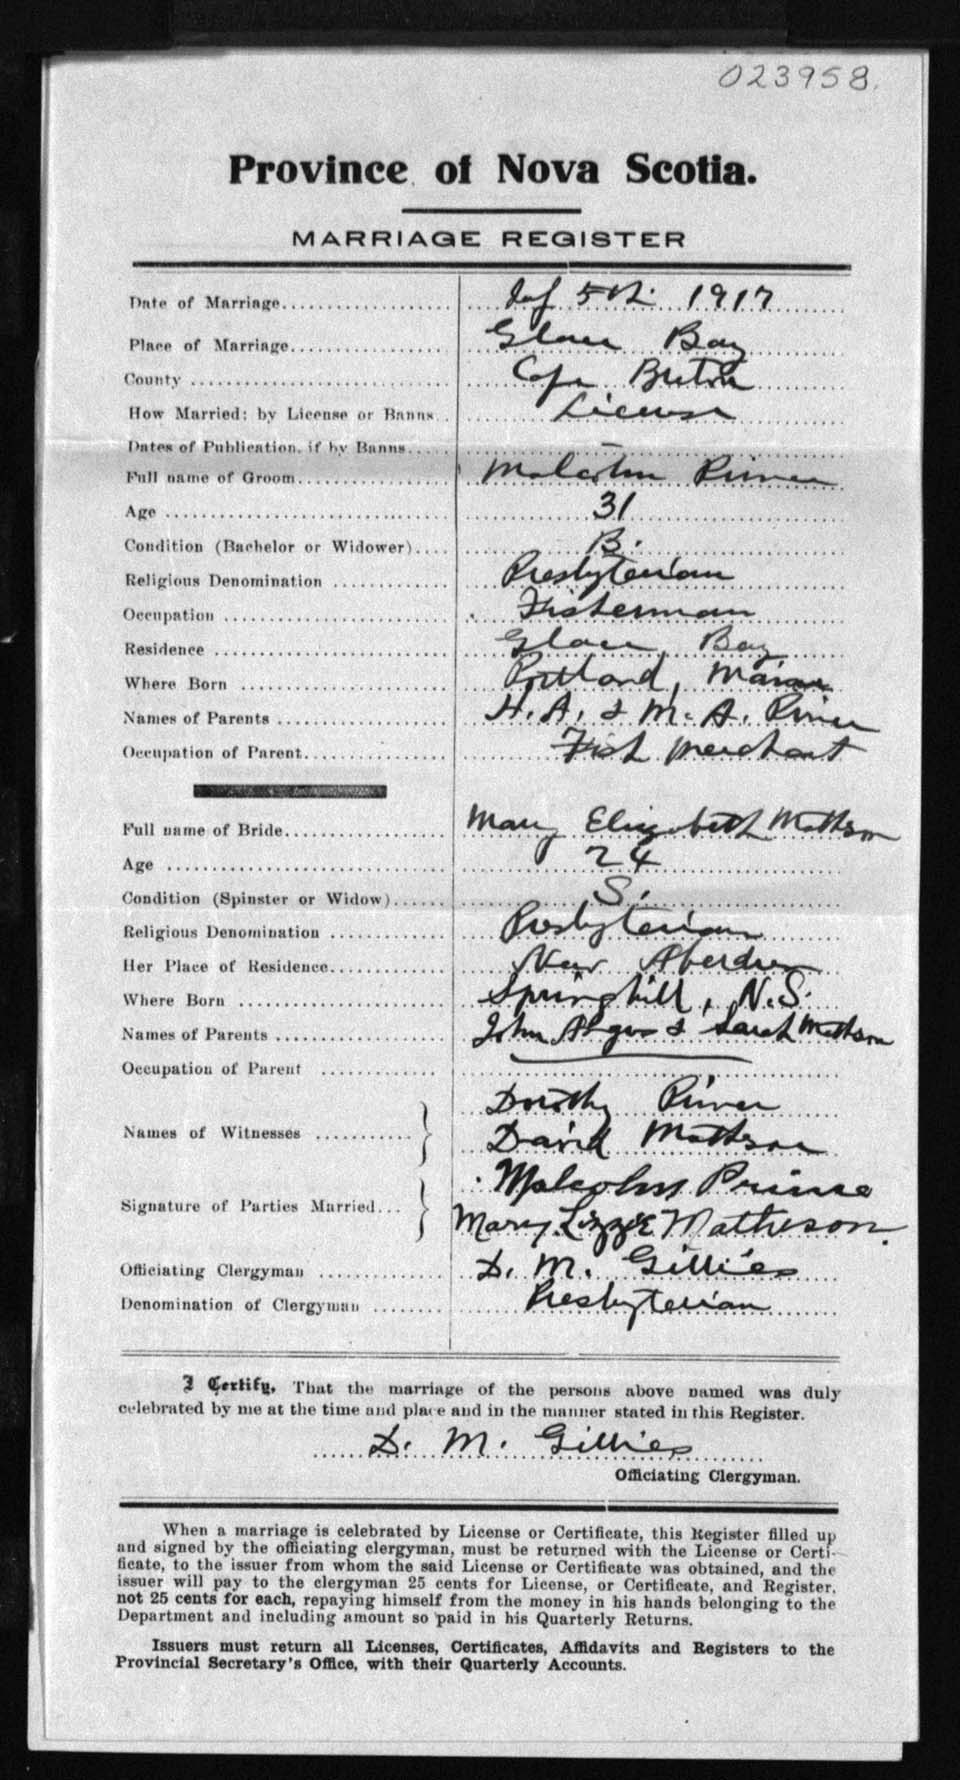 023958.
Province of Nova Scotia.
MARRIAGE REGISTER
Date of Marriage 5th 1917
Place of Marriage Glace Bay
County Cape Breton
How Married: by License or Banns License
Dates of Publication, if by Banns
Full name of Groom Malcolm
Age 31
Condition (Bachelor or Widower) B.
Religious Denomination Presbyterian
Occupation Fisherman
Residence Glace Bay
Where Born Portland, Maine
Names of Parents H. A. & M. A.
Occupation of Parent Fish Merchant
Full name of Bride Mary Elizabeth Matheson
Age 24
Condition (Spinster or Widow) S.
Religious Denomination Presbyterian
Her Place of Residence New Aberdeen
Where Born Springhill, N.S.
Names of Parents John Angus & Sarah Matheson
Occupation of Parent
Dorothy
Names of Witnesses } David Matheson
Malcolm
Signature of Parties Married } Mary Lizzie Matheson.
Officiating Clergyman D. M. Gillies
Denomination of Clergyman Presbyterian
I Certify, That the marriage of the persons above named was duly
celebrated by me at the time and place and in the manner stated in this Register.
D. M. Gillies
Officiating Clergyman.
When a marriage is celebrated by License or Certificate, this Register filled up
and signed by the officiating clergyman, must be returned with the License or Certi-
ficate, to the issuer from whom the said License or Certificate was obtained, and the
issuer will pay to the clergyman 25 cents for License, or Certificate, and Register,
not 25 cents for each, repaying himself from the money in his hands belonging to the
Department and including amount so paid in his Quarterly Returns.
Issuers must return all Licenses, Certificates, Affidavits and Registers to the
Provincial Secretary's Office, with their Quarterly Accounts.